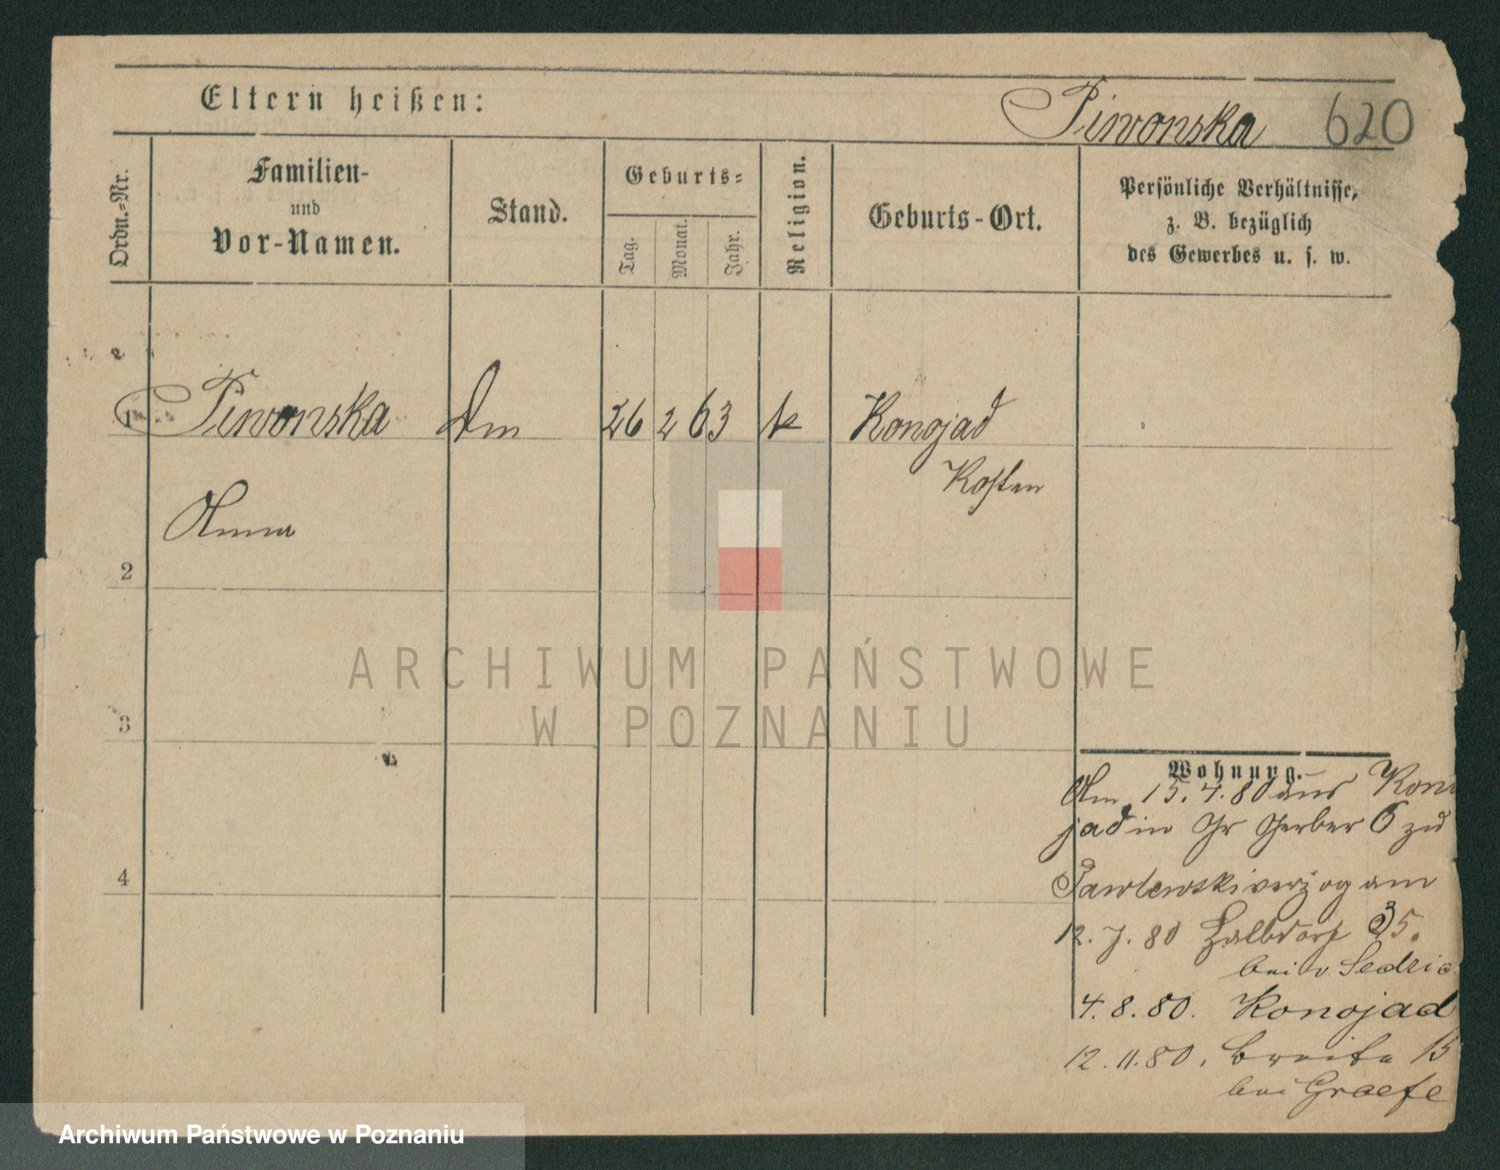 Eltern heißen:
Piwonska 620
Ordn.-Nr.
Familien-
und
Vor-Namen.
Stand.
Geburts-
Tag.
Monat.
Jahr.
Religion.
Geburts-Ort.
Persönliche Verhältnisse,
z. B. bezüglich
des Gewerbes u. s. w.
1 Piwonska Dm 26 2 63 k Konojad
Kosten
Anna
2
3
4
Wohnung.
Am 15.4.80 aus Kono
jad in Gr Gerber 6 zu
Pawlewski verzog am
12.7.80 Halbdorf 35.
bei v
4.8.80. Konojad
12.11.80. Breite 15
bei Graefe
ARCHIWUM PAŃSTWOWE
W POZNANIU
Archiwum Państwowe w Poznaniu